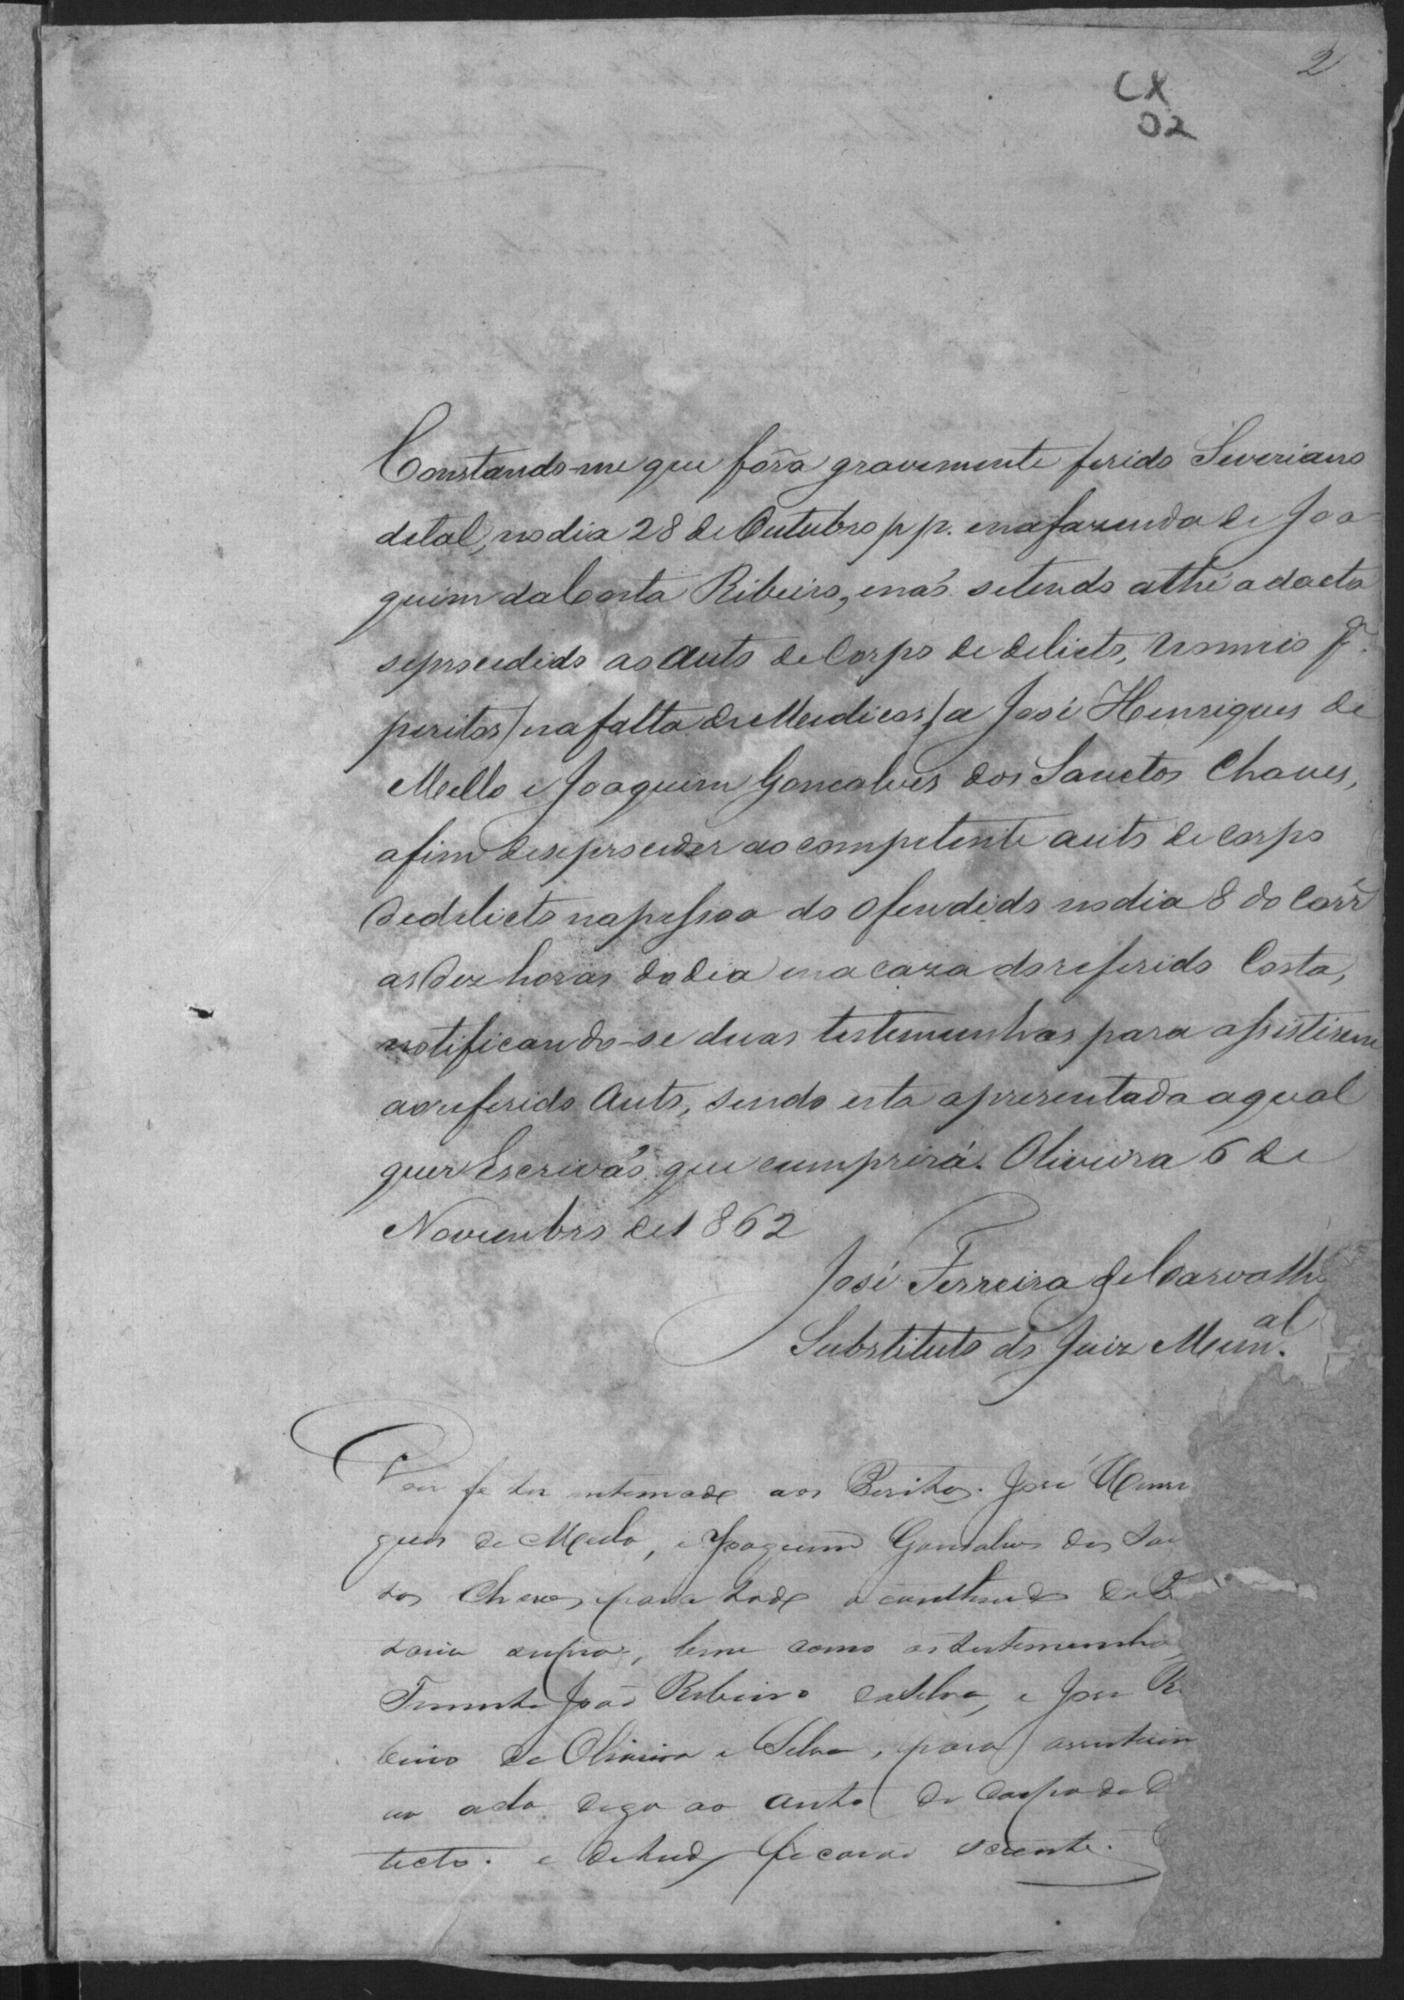 2
CX
02
Constando-me que fôra gravemente ferido Severiano
de tal, no dia 28 de Outubro pp. e na fazenda de Joa
quim da Costa Ribeiro, e nao se tendo athe a dacta
se procedido ao auto de Corpo de delicto, nomeio p.ª
peritos (na falta de Medicos) a José Henriques de
Mello e Joaquim Goncalves dos Sanctos Chaves,
afim de se proceder ao competente auto de corpo
de delicto na pessoa do ofendido no dia 8 do Corr.e
as dez horas do dia e na caza do referido Costa,
notificando-se duas testemunhas para assistirem
ao referido Auto, sendo esta apresentada a qual
quer Escrivão que cumprirá. Oliveira 6 de
Novembro de 1862
José Ferreira de Carvalho
Substituto do Juiz Mun.al
Dou fe ter intemado aos Peritos José Henri
ques de Mello, e Joaquim Gonsalves dos San
tos Chaves para todo o contheudo da P
taria supra, bem como as testemunhas
Tenente João Ribeiro da Silva, e Jose Ri
beiro de Oliveira e Silva, para assistirem
ao acto digo ao auto de Corpo de De
licto. e de tudo ficarão sciente.